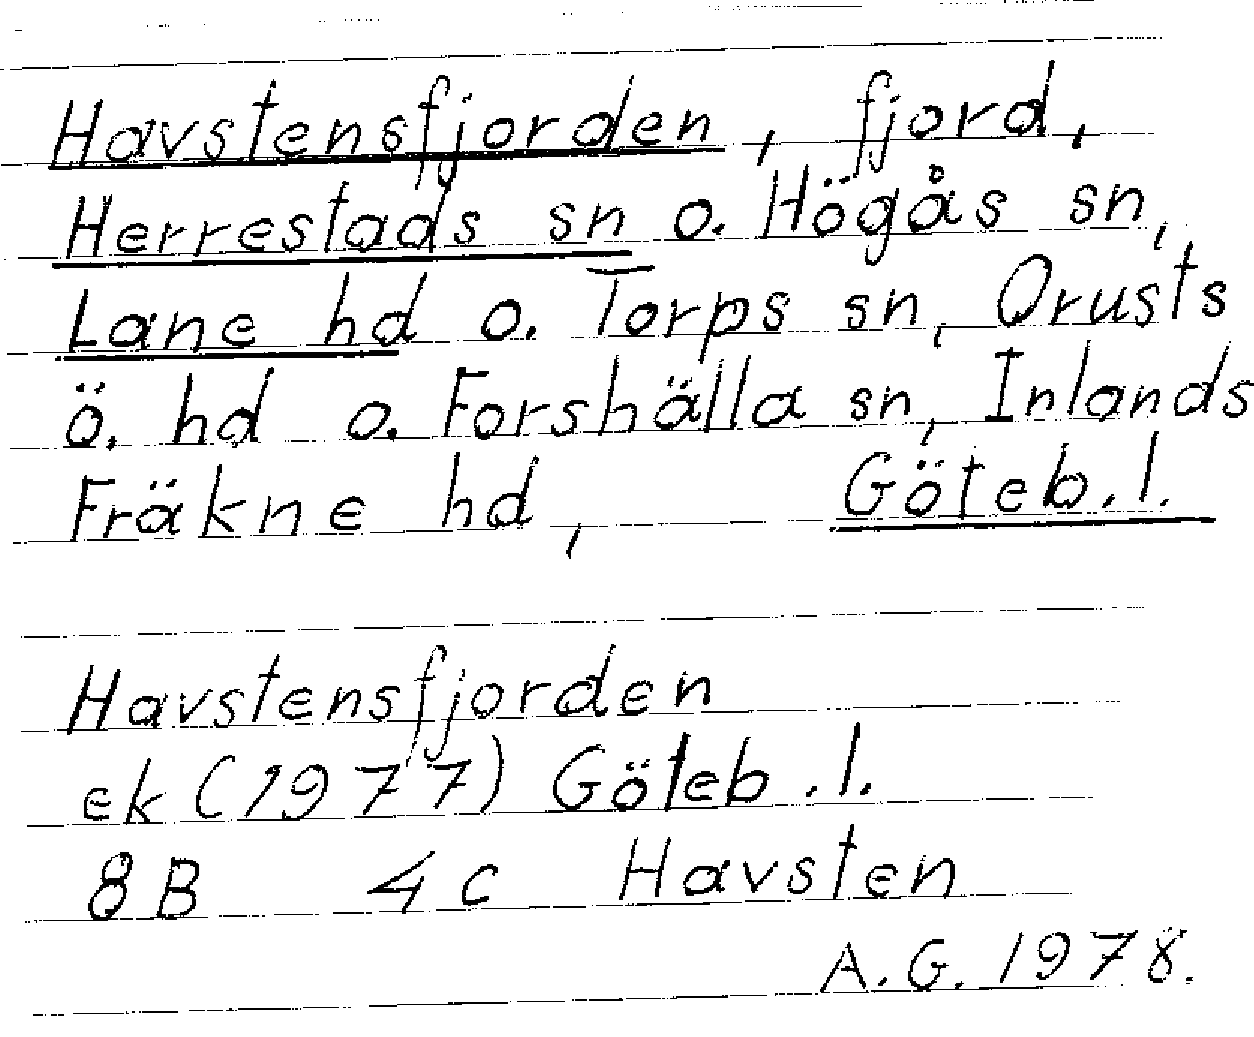 Havstensfjorden, fjord,
Herrestads sn o. Högås sn,
Lane hd o. Torps sn, Orusts
ö. hd o. Forshälla sn, Inlands
Fräkne hd, Göteb. l.
Havstensfjorden
ek (1977) Göteb. l.
8B 4c Havsten
A.G. 1978.